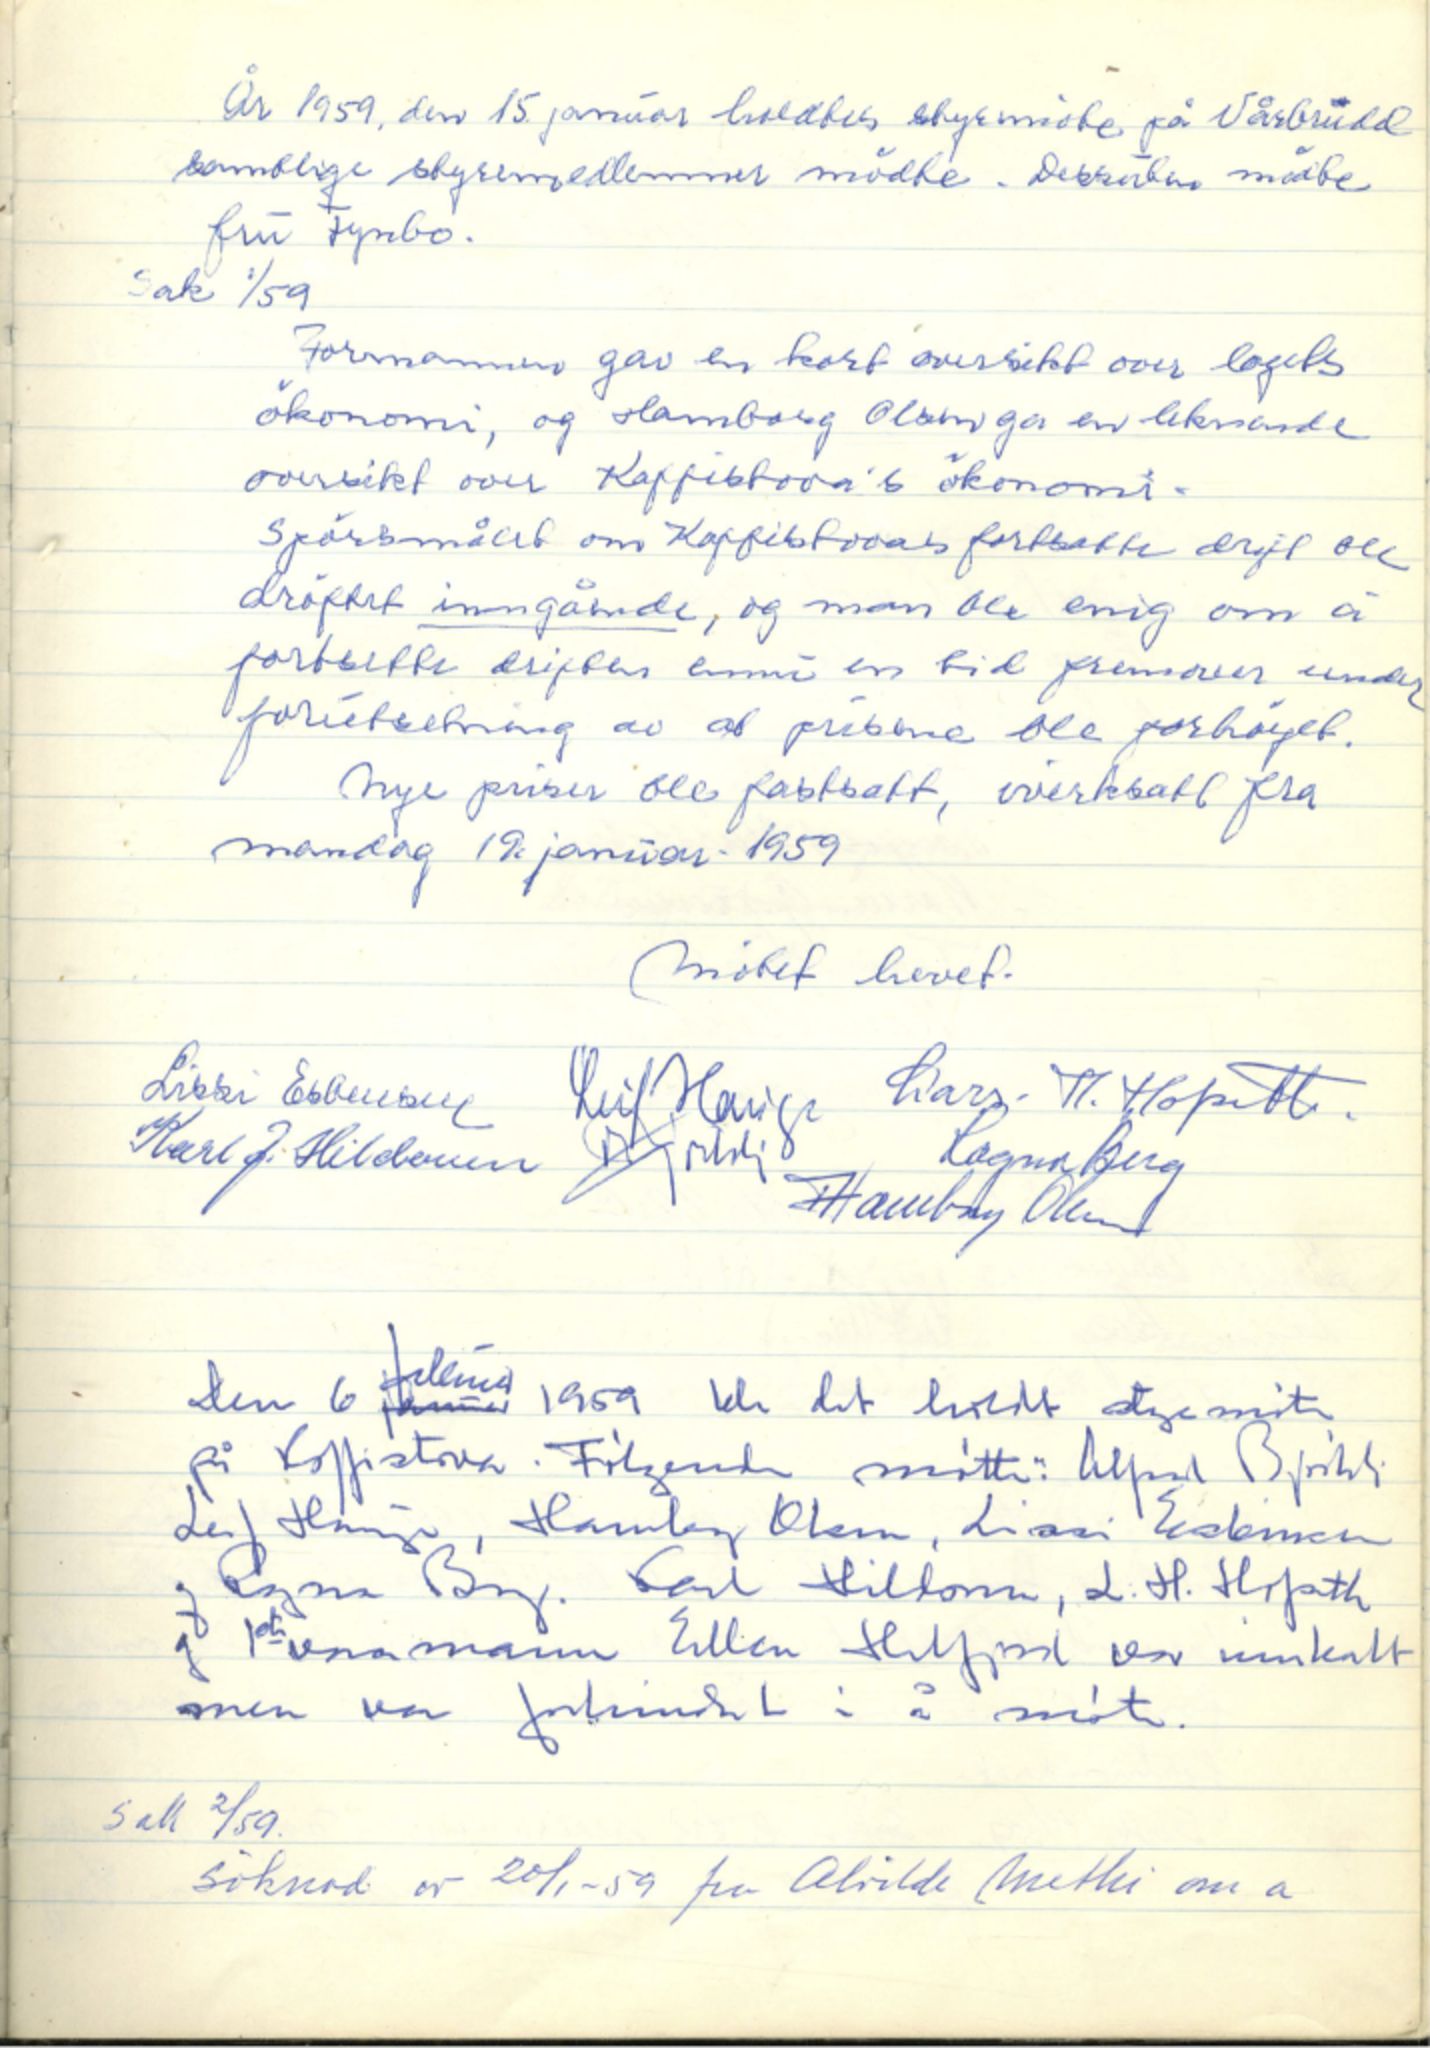 År 1959, den 15. januar holdtes styremöte på Vårbrudd
samtlige styremedlemmer mödte. Dessuten mödte
fru Fynbo.
Sak 1/59
Formannen gav en kort oversikt over lagets
ökonomi, og Hamborg Olsen ga en liknende
oversikt over Kaffistova's ökonomi.
Spörsmålet om Kaffistovas fortsatte drift ble
dröftet inngående, og man ble enig om å
fortsette driften ennu en tid fremover under
forutsetning av at prisene ble forhöyet.
Nye priser ble fastsatt, iverksatt fra
mandag 19. januar. 1959
Mötet hevet.
Lissi Esbensen Leif Hauge Lars. H. Hopseth.
Karl J. Hildonen A Bjørkli Ragna Berg
Hamborg Olsen
Den 6 januar februar 1959 ble det holdt styremöte
på Kaffistova. Fölgende mötte: Alfred Björkli
Leif Hauge, Hamborg Olsen, Lissi Esbensen
og Ragna Berg. Karl Hildonen, L. H. Hopseth
og 1ste varamann Ellen var innkalt
men var forhindret i å möte.
Sak 2/59.
Söknad av 20/1-59 fra Alvilde om a